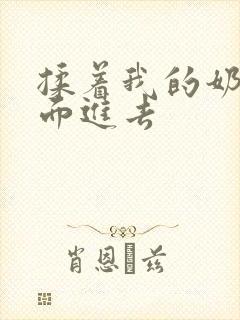 揉着我的奶
而进去
肖恩·兹